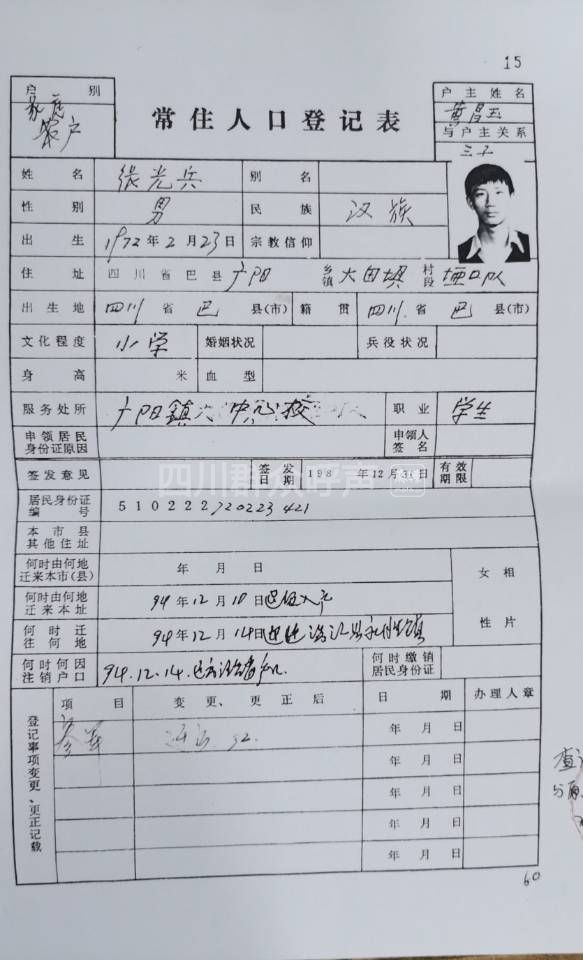 15
户别
家庭
农户
常住人口登记表
户主姓名
黄昌玉
与户主关系
三子
姓名 张光兵 别名
性别 男 民族 汉族
出生 1972年2月23日 宗教信仰
住址 四川省巴县广阳 乡镇 大田坝 村段 垭口队
出生地 四川省巴县(市) 籍贯 四川省巴县(市)
文化程度 小学 婚姻状况 兵役状况
身高 米 血型
服务处所 广阳鎮 中心校 职业 学生
申领居民身份证原因 申领人签名
签发意见 签发日期 198 年12月30日 有效期限
四川群众呼声
居民身份证编号 510222720223421
本市县其他住址
何时由何地迁来本市(县) 年月日
何时由何地迁来本址 94年12月10日 入户
女相
性片
何时迁往何地 94年12月14日
何时何因注销户口 94.12.14.
何时缴销居民身份证
登记事项变更、更正记载
项目 变更、更正后 日期 办理人章
年月日
年月日
年月日
年月日
年月日
60